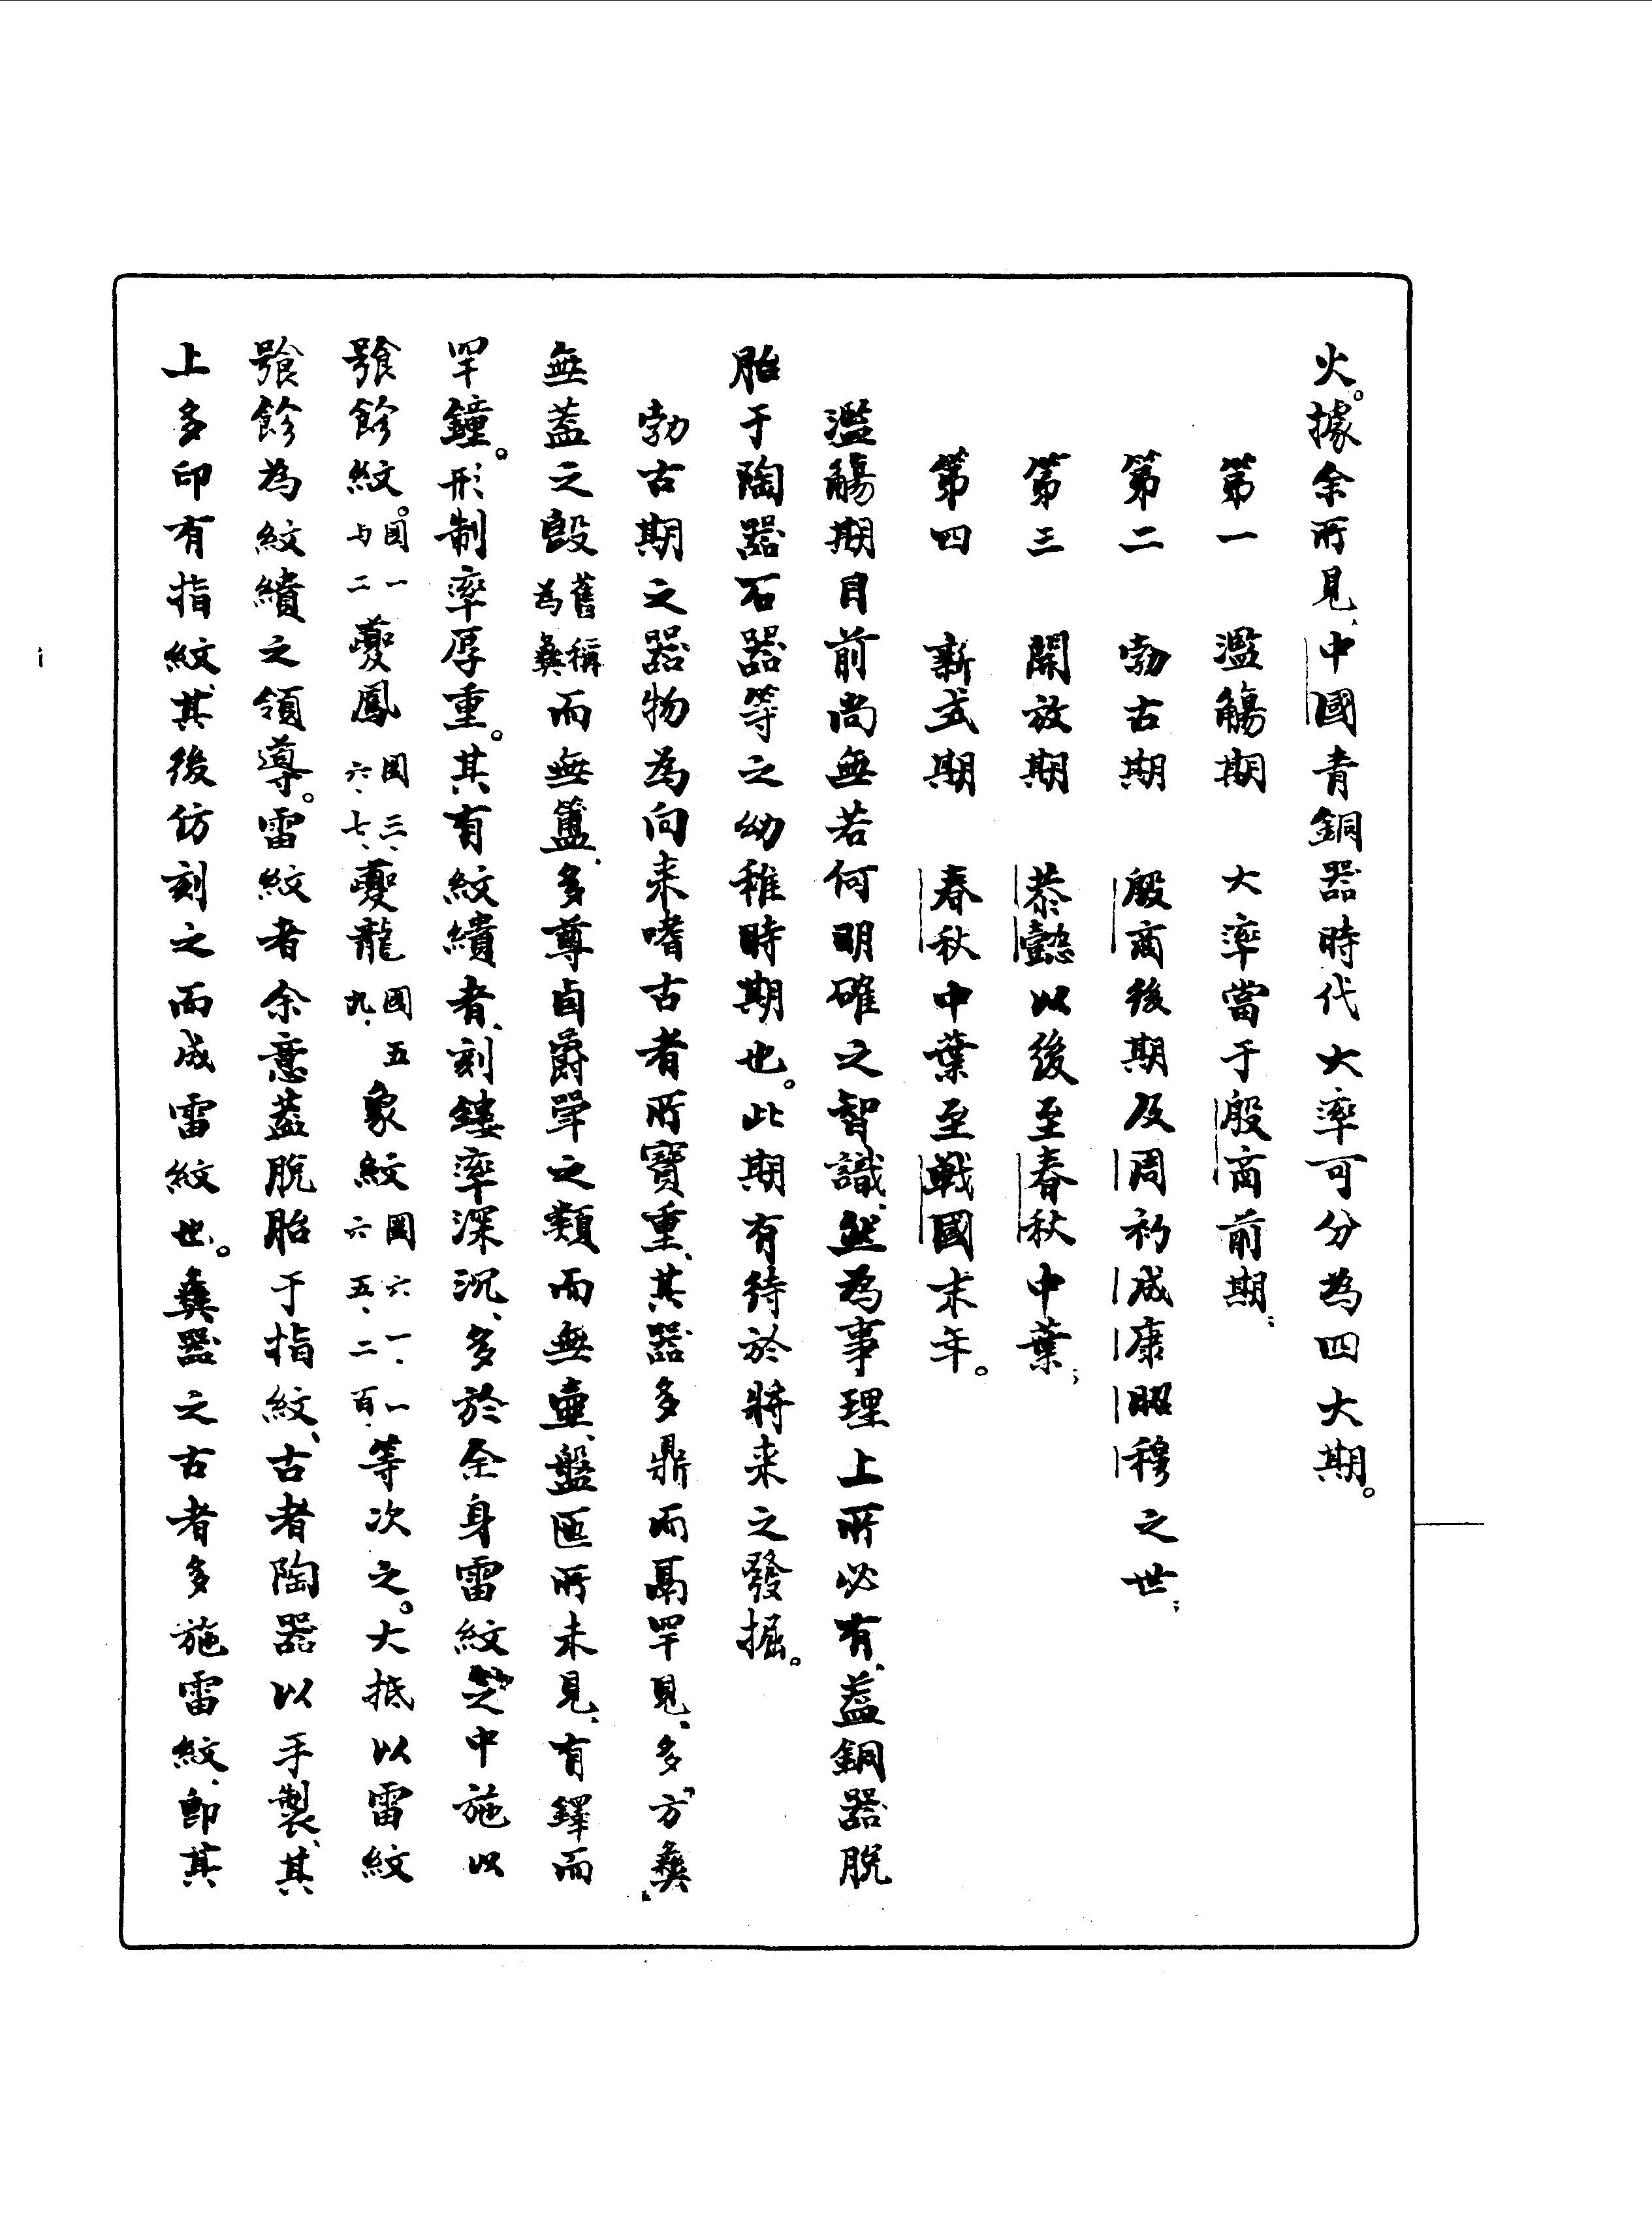 火。據余所見、中國青銅器時代大率可分為四大期。
第一　濫觴期　大率當于殷商前期；
第二　勃古期　殷商後期及周初成康昭穆之世；
第三　開放期　恭懿以後至春秋中葉；
第四　新式期　春秋中葉至戰國末年。
濫觴期目前尚無若何明確之智識、然為事理上所必有、蓋銅器脫
胎于陶器石器等之幼稚時期也。此期有待於將來之發掘。
勃古期之器物為向來嗜古者所寶重、其器多鼎而鬲罕見、多「方彝」
無蓋之𣪘舊稱為彝而無簠、多尊卣爵斝之類而無壷、盤匜所未見、有鐸而
罕鐘。形制率厚重。其有紋繢者、刻鏤率深沉、多於全身雷紋之中施以
饕餮紋。圖一与二夔鳳圖三、六、七、夔龍圖五九、象紋圖六六一、一六五、二百、等次之。大抵以雷紋
饕餮為紋繢之領導。雷紋者余意蓋脫胎于指紋、古者陶器以手製、其
上多印有指紋、其後仿刻之而成雷紋也。彝器之古者多施雷紋、即其